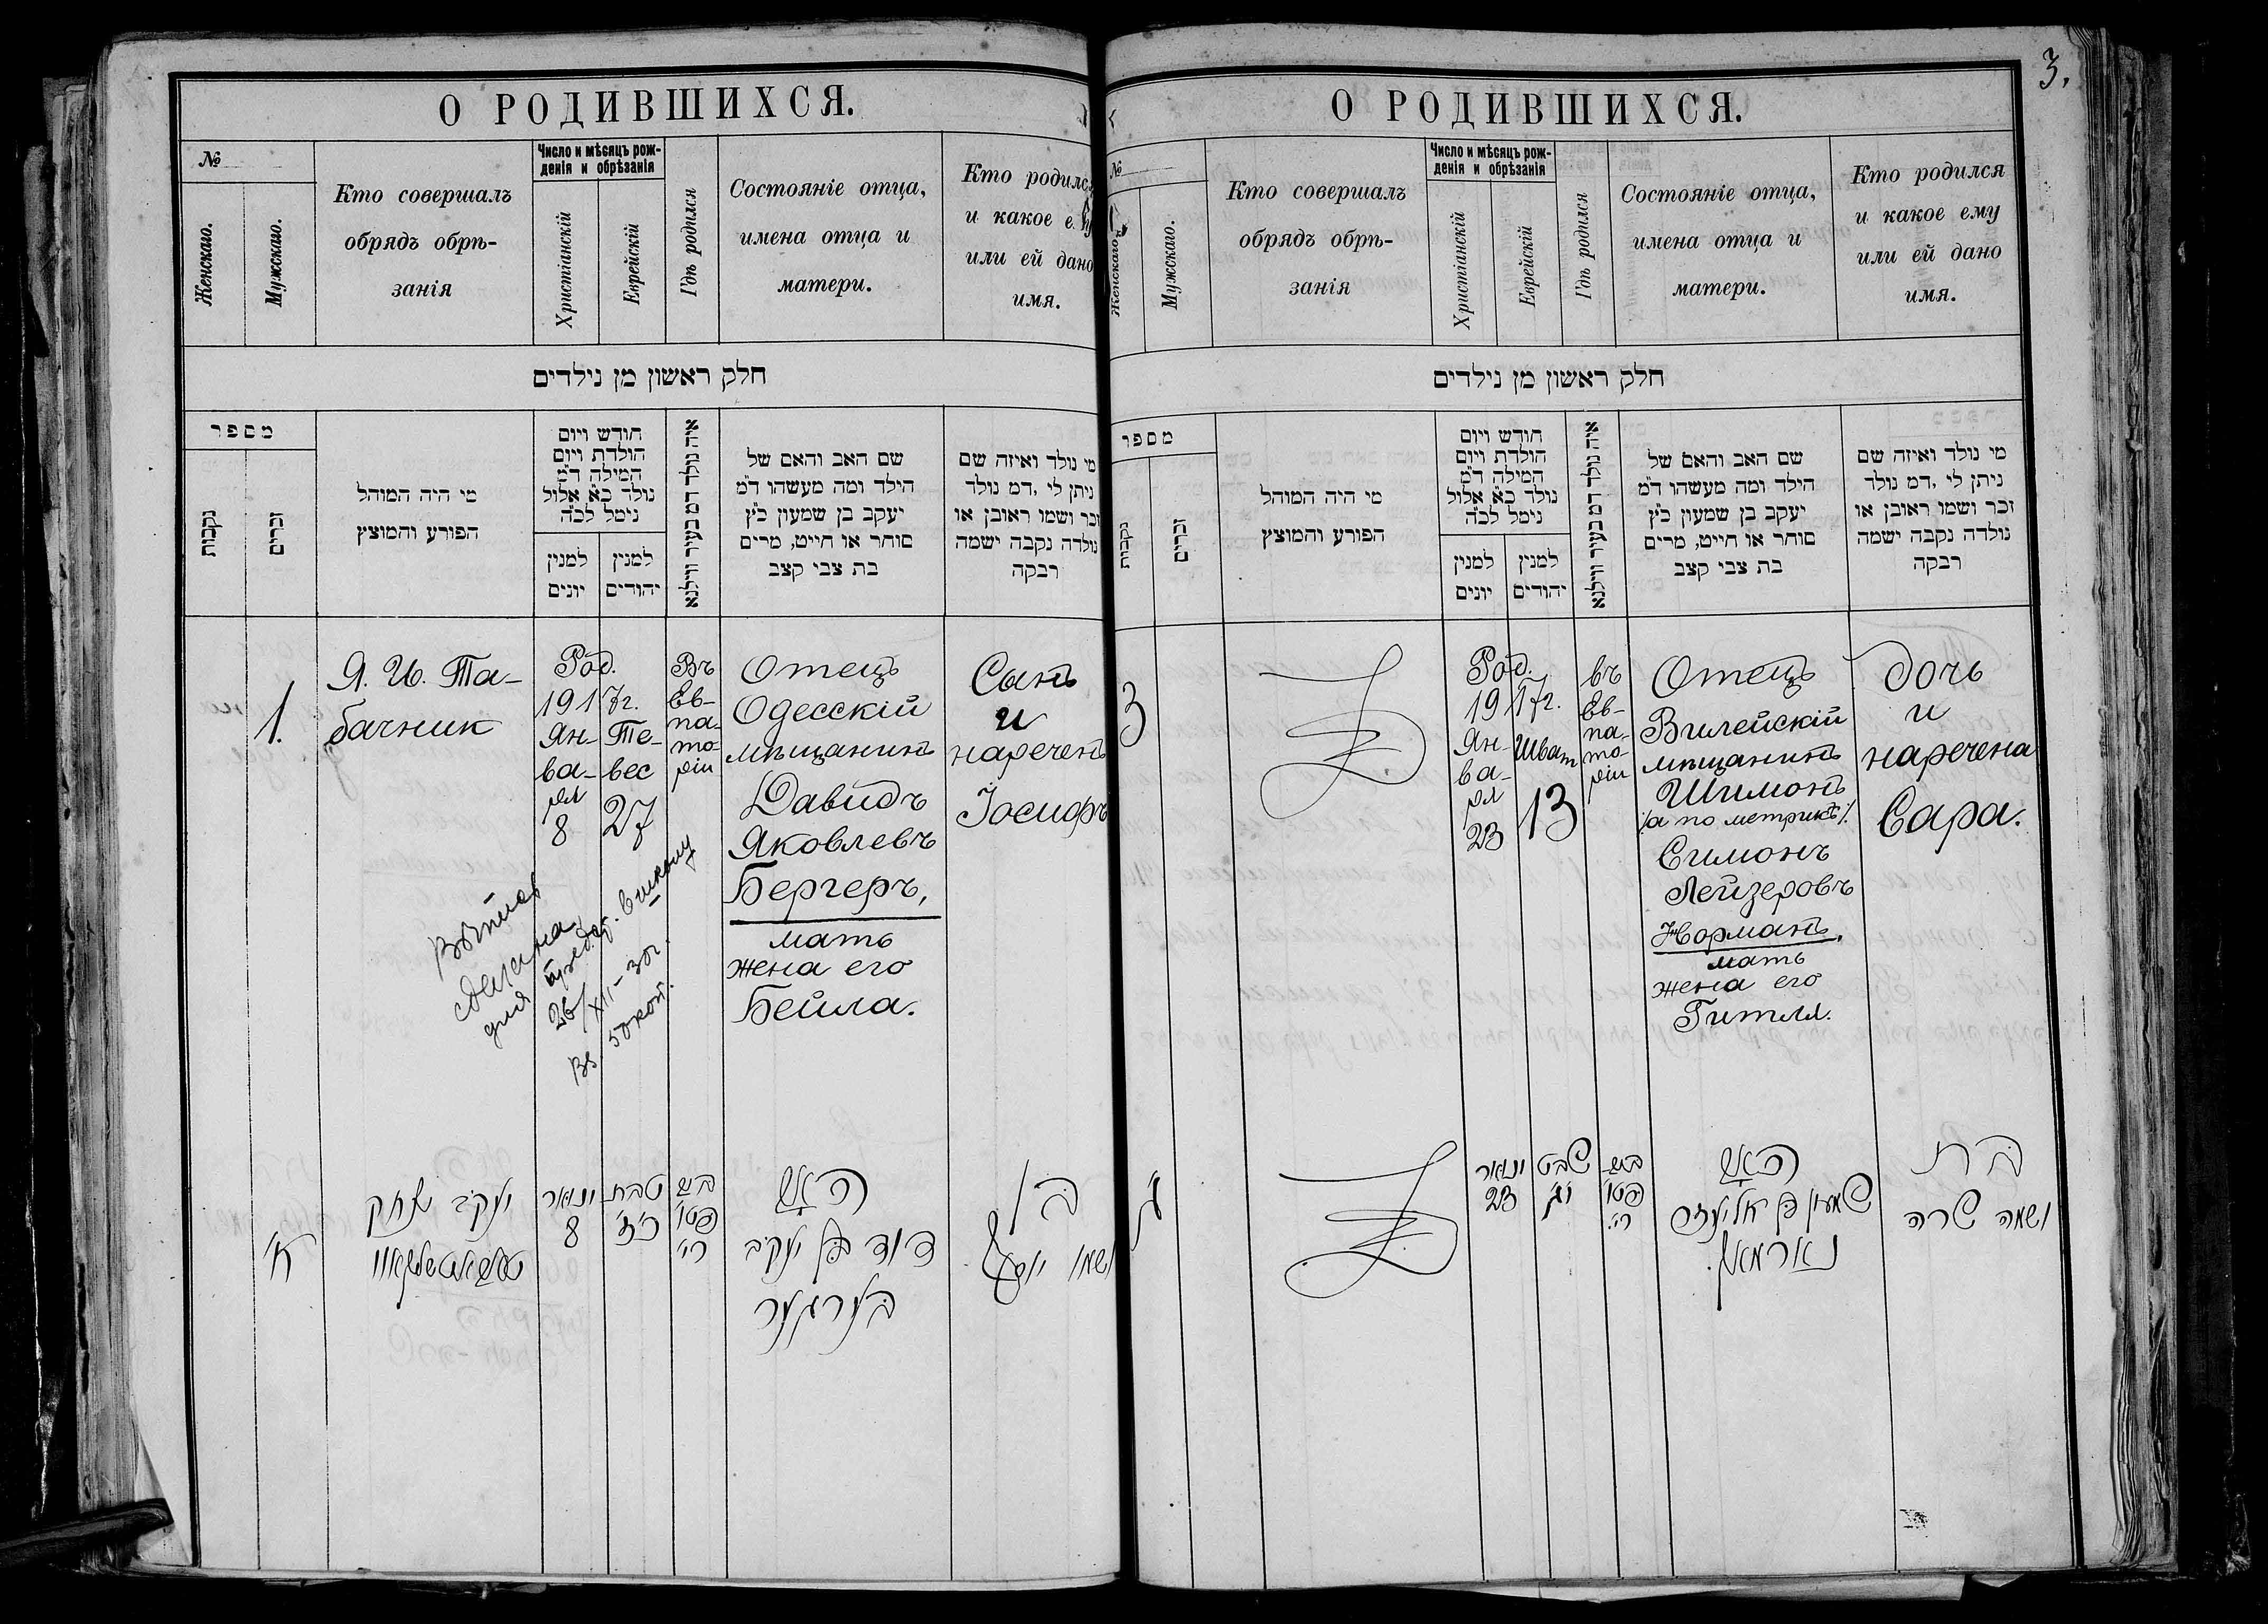 3.
О РОДИВШИХСЯ.
№
Женскаго.
Мужскаго.
Кто совершалъ
обрядъ обрѣ-
занія
Число и мѣсяцъ рож-
денія и обрѣзанія
Христіанскій
Еврейскій
Гдѣ родился
Состояніе отца,
имена отца и
матери.
Кто родился
и какое е
или ей дано
имя.
חלק ראשון מן נילדים
מספר
נקבות
זכרים
מי היה המוהל
הפורע והמוצץ
חודש ויום
הולדת ויום
המילה ד״מ
נולד כ״א אלול
נימל לכ״ה
למנין
יונים
למנין
יהודים
איה נולד דמ בעיר ווילנא
שם האב והאם של
הילד ומה מעשהו ד״מ
יעקב בן שמעון כ״ץ
סוחר או חייט, מרים
בת צבי קצב
מי נולד ואיזה שם
ניתן לי ,דמ נולד
זכר ושמו ראובן או
נולדה נקבה ישמה
רבקה
1.
Я. И. Та-
бачник
Род.
1917г.
Ян-
ва-
ря
8
Те-
вес
27
Въ
Ев-
па-
то-
ріи
Отецъ
Одесскій
мѣщанинъ
Давидъ
Яковлевъ
Бергеръ,
мать
жена его
Бейла.
Сынъ
и
нареченъ
Іосифъ
сделана
для предст. в школу
26/XII-30г.
50 коп.
א׳
יעקב יצחק
ינואר
8
טבת
כ״ז
האב
דוד בן יעקב
בערגער
בן
ושמו יוסף
О РОДИВШИХСЯ.
№
Женскаго.
Мужскаго.
Кто совершалъ
обрядъ обрѣ-
занія
Число и мѣсяцъ рож-
денія и обрѣзанія
Христіанскій
Еврейскій
Гдѣ родился
Состояніе отца,
имена отца и
матери.
Кто родился
и какое ему
или ей дано
имя.
חלק ראשון מן נילדים
מספר
נקבות
זכרים
מי היה המוהל
הפורע והמוצץ
חודש ויום
הולדת ויום
המילה ד״מ
נולד כ״א אלול
נימל לכ״ה
למנין
יונים
למנין
יהודים
איה נולד דמ בעיר ווילנא
שם האב והאם של
הילד ומה מעשהו ד״מ
יעקב בן שמעון כ״ץ
סוחר או חייט, מרים
בת צבי קצב
מי נולד ואיזה שם
ניתן לי ,דמ נולד
זכר ושמו ראובן או
נולדה נקבה ישמה
רבקה
3
Род.
1917г.
Ян-
ва-
ря
23
Шват
13
въ
Ев-
па-
то-
ріи
Отецъ
Вилейскій
мѣщанинъ
Шимонъ
/а по метрикѣ/.
Симонъ
Лейзеровъ
Норманъ,
мать
жена его
Гитля.
дочь
и
наречена
Сара.
ג׳
ינואר
23
שבט
י״ג
האב
שמעון בן אליעזר
נארמאן.
בת
ושמה שרה